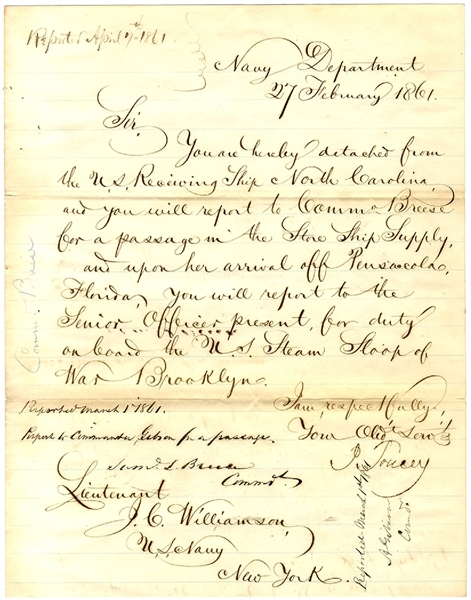 Reported April 7th 1861
Navy Department
27 February 1861.
Sir,
You are hereby detached from
the U.S. Receiving Ship North Carolina,
and you will report to Commo. Breese
for a passage in the Store Ship Supply,
and upon her arrival off Pensacola,
Florida, you will report to the
Senior Officer present, for duty
on board the U.S. Steam Sloop of
War Brooklyn.
I am, respectfully,
Your Obdt. Servt.
I. Toucey
Reported March 1st 1861.
Report to Commander Gibson for a passage.
Saml. L. Breese
Commdt.
Lieutenant
J. C. Williamson,
U.S. Navy
New York.
Reported March 1st 1861
A. Gibson
Comdr.
Comm. Breese